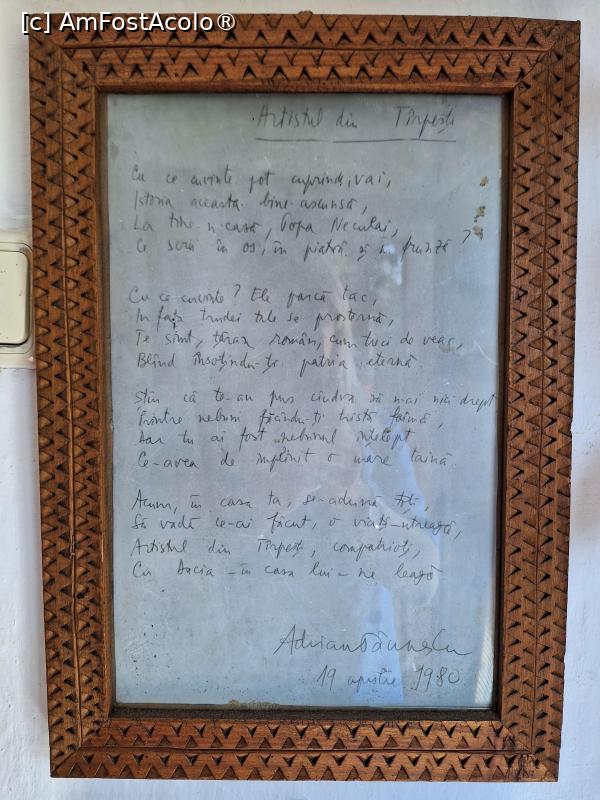 [c] AmFostAcolo®
Artistul din Tîrpești
Cu ce cuvinte pot cuprinde, vai,
Istoria aceasta bine-ascunsă,
La tine-n casă, Popa Neculai,
Ce scrii în os, în piatră și-n frunză?
Cu ce cuvinte? Ele parcă tac,
În fața trudei tale se prosternă,
Te simt, țăran român, cum treci de veac,
Blînd însoțindu-ți patria eternă
Știu că te-au pus cîndva să mai nici drept
Printre nebuni făcîndu-ți tristă faimă,
Dar tu ai fost nebunul înțelept
Ce-avea de împlinit o mare taină
Acum, în casa ta, se-adună toți,
Să vadă ce-ai făcut, o viață-ntreagă,
Artistul din Tîrpești, compatrioți,
Cu Dacia -în casa lui- ne leagă
Adrian Păunescu
19 1980